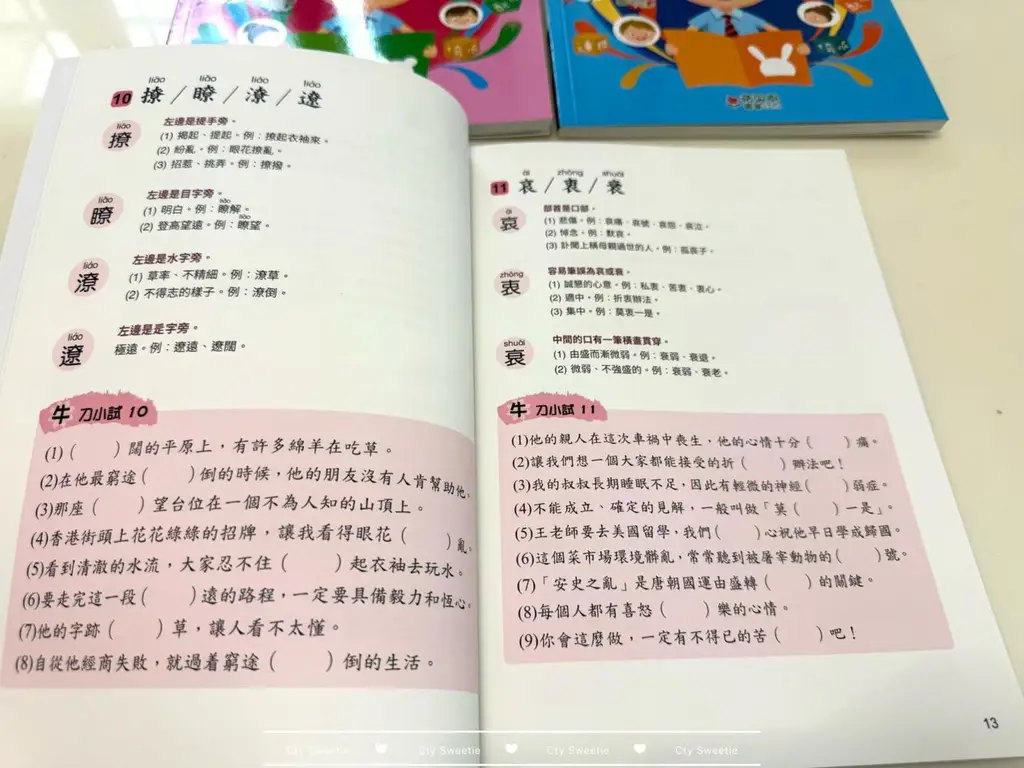 liāo liǎo liáo liáo
10 撩／瞭／潦／遼
liāo
撩
左邊是提手旁。
(1) 揭起、提起。例：撩起衣袖來。
(2) 紛亂。例：眼花撩亂。
(3) 招惹、挑弄。例：撩撥。
瞭
左邊是目字旁。
(1) 明白。例：瞭解。
(2) 登高望遠。例：瞭望。
liáo
潦
左邊是水字旁。
(1) 草率、不精細。例：潦草。
(2) 不得志的樣子。例：潦倒。
liáo
遼
左邊是辵字旁。
極遠。例：遼遠、遼闊。
牛刀小試 10
(1)（　　）闊的平原上，有許多綿羊在吃草。
(2)在他最窮途（　　）倒的時候，他的朋友沒有人肯幫助他。
(3)那座（　　）望台位在一個不為人知的山頂上。
(4)香港街頭上花花綠綠的招牌，讓我看得眼花（　　）亂。
(5)看到清澈的水流，大家忍不住（　　）起衣袖去玩水。
(6)要走完這一段（　　）遠的路程，一定要具備毅力和恆心。
(7)他的字跡（　　）草，讓人看不太懂。
(8)自從他經商失敗，就過着窮途（　　）倒的生活。
āi zhōng shuāi
11 哀／衷／衰
āi
哀
部首是口部。
(1) 悲傷。例：哀痛、哀號、哀怨、哀泣。
(2) 悼念。例：默哀。
(3) 訃聞上稱母親過世的人。例：孤哀子。
zhōng
衷
容易筆誤為哀或衰。
(1) 誠懇的心意。例：私衷、苦衷、衷心。
(2) 適中。例：折衷辦法。
(3) 集中。例：莫衷一是。
shuāi
衰
中間的口有一筆橫畫貫穿。
(1) 由盛而漸微弱。例：衰弱、衰退。
(2) 微弱、不強盛的。例：衰弱、衰老。
牛刀小試 11
(1)他的親人在這次車禍中喪生，他的心情十分（　　）痛。
(2)讓我們想一個大家都能接受的折（　　）辦法吧！
(3)我的叔叔長期睡眠不足，因此有輕微的神經（　　）弱症。
(4)不能成立、確定的見解，一般叫做「莫（　　）一是」。
(5)王老師要去美國留學，我們（　　）心祝他早日學成歸國。
(6)這個菜市場環境髒亂，常常聽到被屠宰動物的（　　）號。
(7)「安史之亂」是唐朝國運由盛轉（　　）的關鍵。
(8)每個人都有喜怒（　　）樂的心情。
(9)你會這麼做，一定有不得已的苦（　　）吧！
13
Cty Sweetie Cty Sweetie Cty Sweetie Cty Sweetie